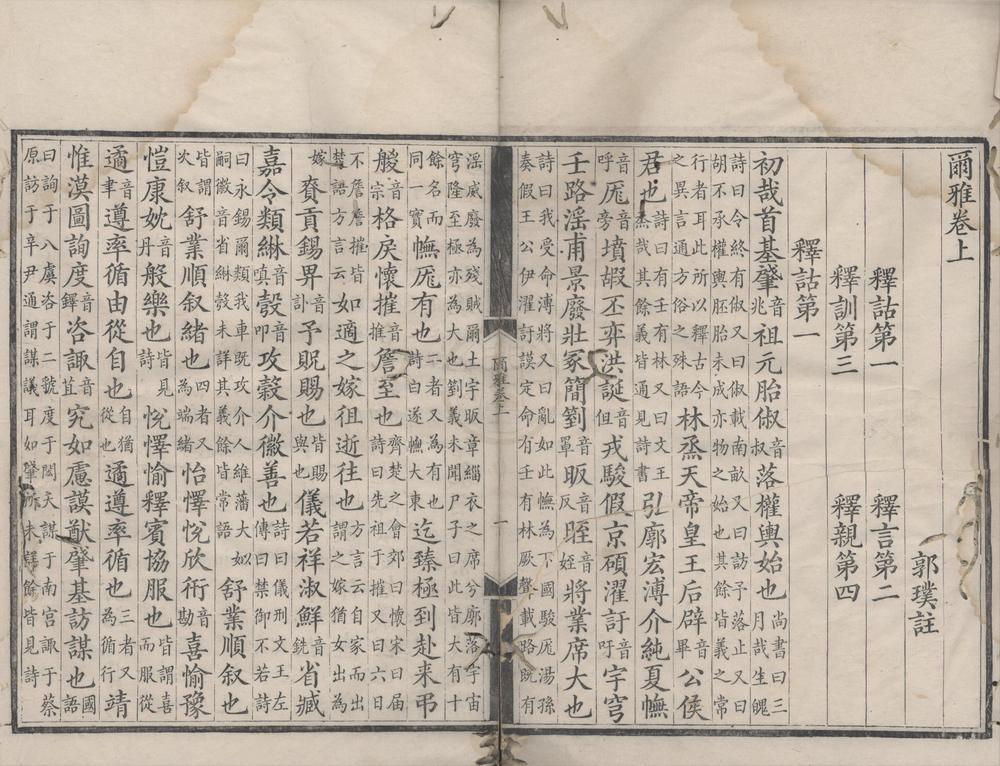 爾雅卷上
郭璞註
釋詁第一 釋言第二
釋訓第三 釋親第四
釋詁第一
初哉首基肇音兆祖元胎俶音叔落權輿始也尚書曰三月哉生魄
詩曰令終有俶又曰俶載南畝又曰訪予落止又曰胡不承權輿胚胎未成亦物之始也其餘皆義之常
行者耳此所以釋古今之異言通方俗之殊語林烝天帝皇王后辟音畢公侯
君也詩曰有壬有林又曰文王烝哉其餘義皆通見詩書弘廓宏溥介純夏幠
音呼厖音旁墳嘏丕弈洪誕音但戎駿假京碩濯訏音吁宇穹
壬路淫甫景廢壯冢簡劉音罩昄音反晊音姪將業席大也
詩曰我受命溥將又曰亂如此幠為下國駿厖湯孫奏假王公伊濯訏謨定命有壬有林厥聲載路既有
淫威廢為殘賊爾土宇昄章緇衣之席兮廓落宇宙穹隆至極亦為大也劉義未聞尸子曰此皆大有十
餘名而同一實幠厖有也二者又為有也詩曰遂幠大東迄臻極到赴来弔
艐音宗格戾懷摧音摧詹至也齊楚之會郊曰懷宋曰届詩曰先祖于摧又曰六日
不詹詹摧皆楚語方言云如適之嫁徂逝往也方言云自家而出謂之嫁猶女出為
嫁 賚貢錫畀音訃予貺賜也皆賜與也儀若祥淑鮮音銑省臧
嘉令類綝音嗔彀音叩攻穀介徽善也詩曰儀刑文王左傳曰禁御不若詩
曰永錫爾類我車既攻介人維藩大姒嗣徽音省綝彀未詳其義餘皆常語舒業順叙也
皆謂次叙舒業順叙緒也四者又為端緒怡懌悅欣衎音勘喜愉豫
愷康妉音丹般樂也皆見詩悅懌愉釋賓協服也皆謂喜而服從
遹音聿遵率循由從自也自猶從也遹遵率循也三者又為循行靖
惟漠圖詢度音鐸咨諏音苴究如慮謨猷肇基訪謀也國語
曰詢于八虞咨于二虢度于閎夭謀于南宮諏于蔡原訪于辛尹通謂謀議耳如肇所未詳餘皆見詩
爾雅卷上 一